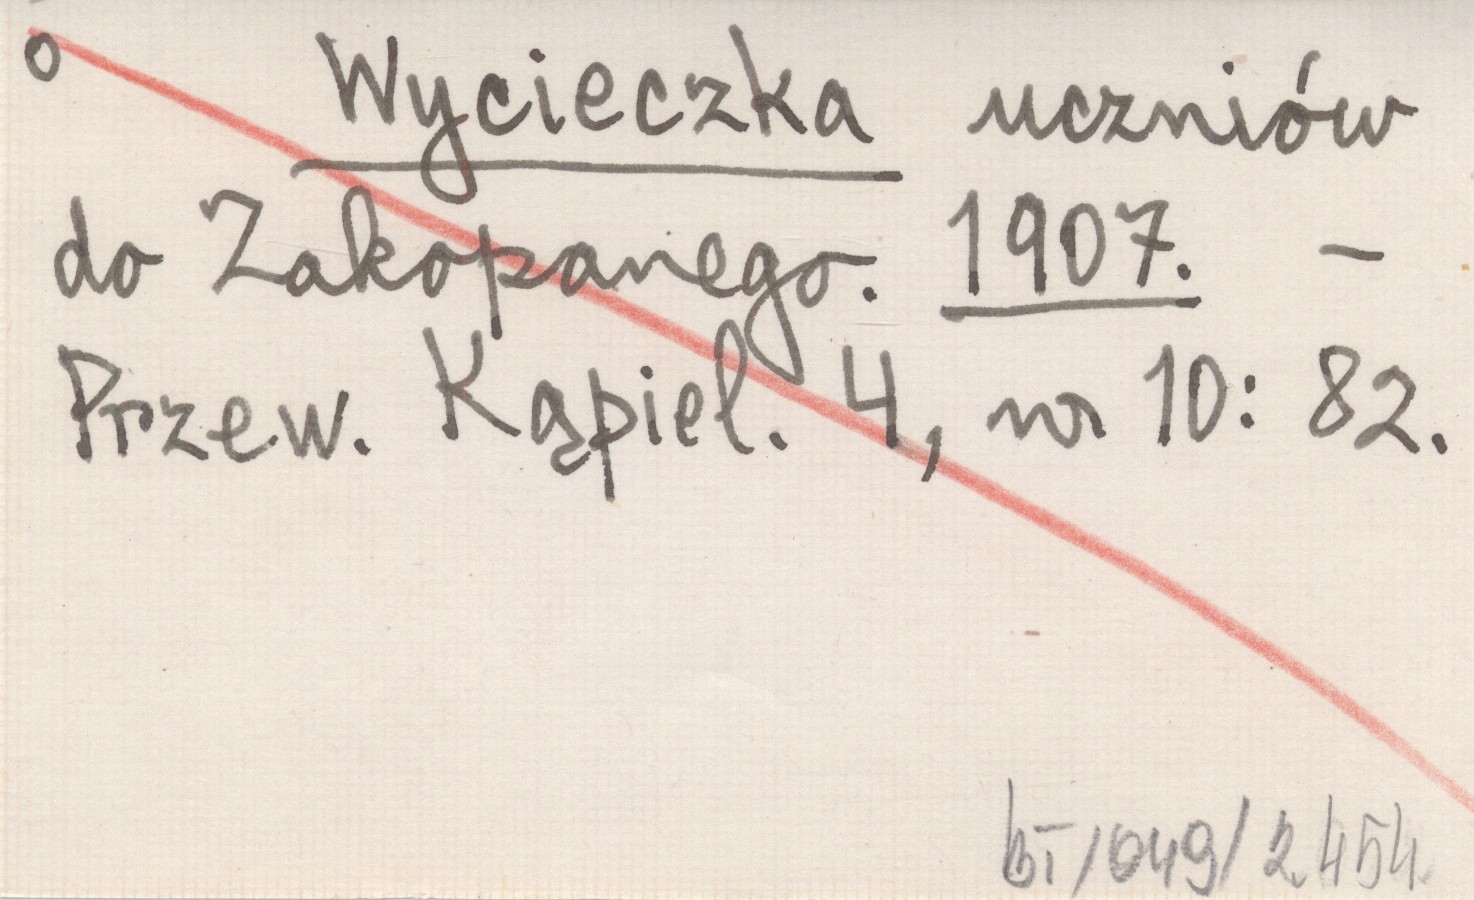 o Wycieczka uczniów
do Zakopanego. 1907. –
Przew. Kąpiel. 4, nr 10: 82.
bT/049/2454